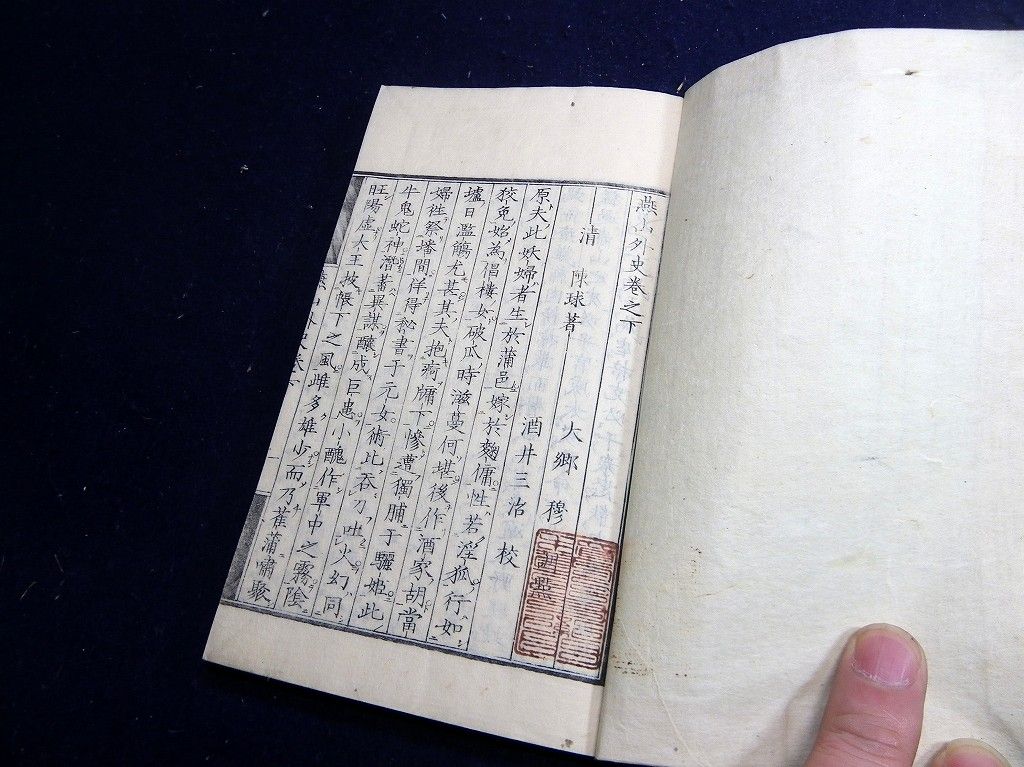 燕山外史卷之下
清 陳球著 大郷 穆
酒井三治 校
原夫此妖婦者生於蒲邑嫁於麴傭性若淫狐行如
狡兔始為倡樓女破瓜時滋蔓何堪後作酒家胡當
壚日濫觴尤甚其夫抱疴牖下慘遭獨脯于驪姬此
婦往祭墦間佯得秘書于元女術比吞刀吐火幻同
牛鬼蛇神潛蓄異謀釀成巨患小醜作軍中之霧陰
旺陽虛大王披帳下之風雌多雄少而乃萑蒲嘯聚
燕山外史卷下